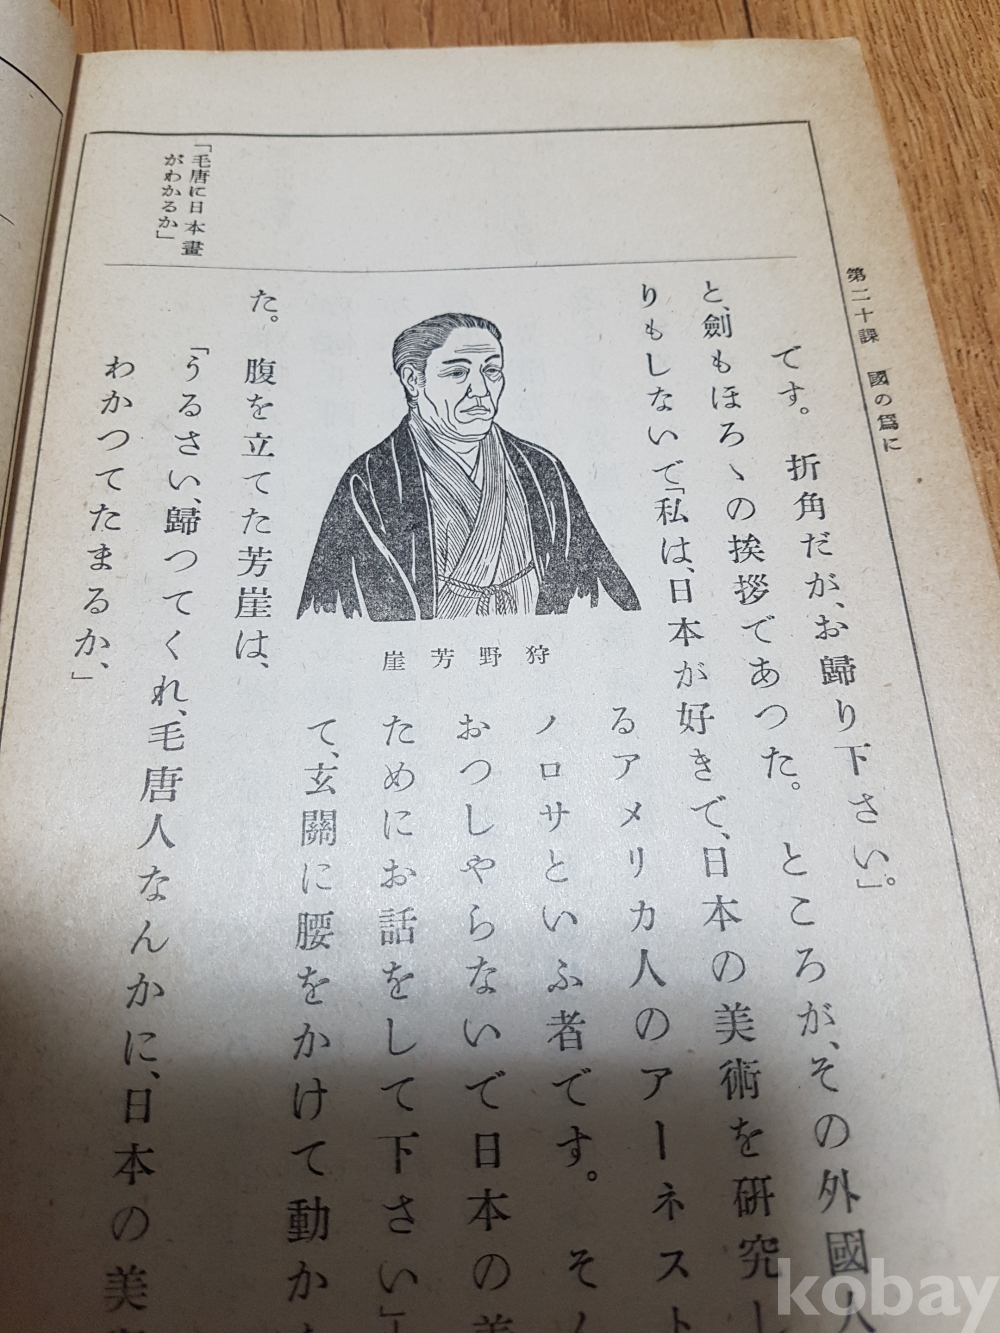 第二十課 國の爲に
です。折角だが、お歸り下さい。」ところが、その外國人
と、劍もほろゝの挨拶であつた。
りもしないで「私は、日本が好きで、日本の美術を硏究し
るアメリカ人のアーネスト
ノロサといふ者です。そん
おつしやらないで日本の美
ためにお話をして下さい」
て、玄關に腰をかけて動か
狩野芳崖
た。腹を立てた芳崖は、
「うるさい、歸つてくれ、毛唐人なんかに、日本の美
わかつてたまるか、」
「毛唐に日本畫
がわかるか」
kobay